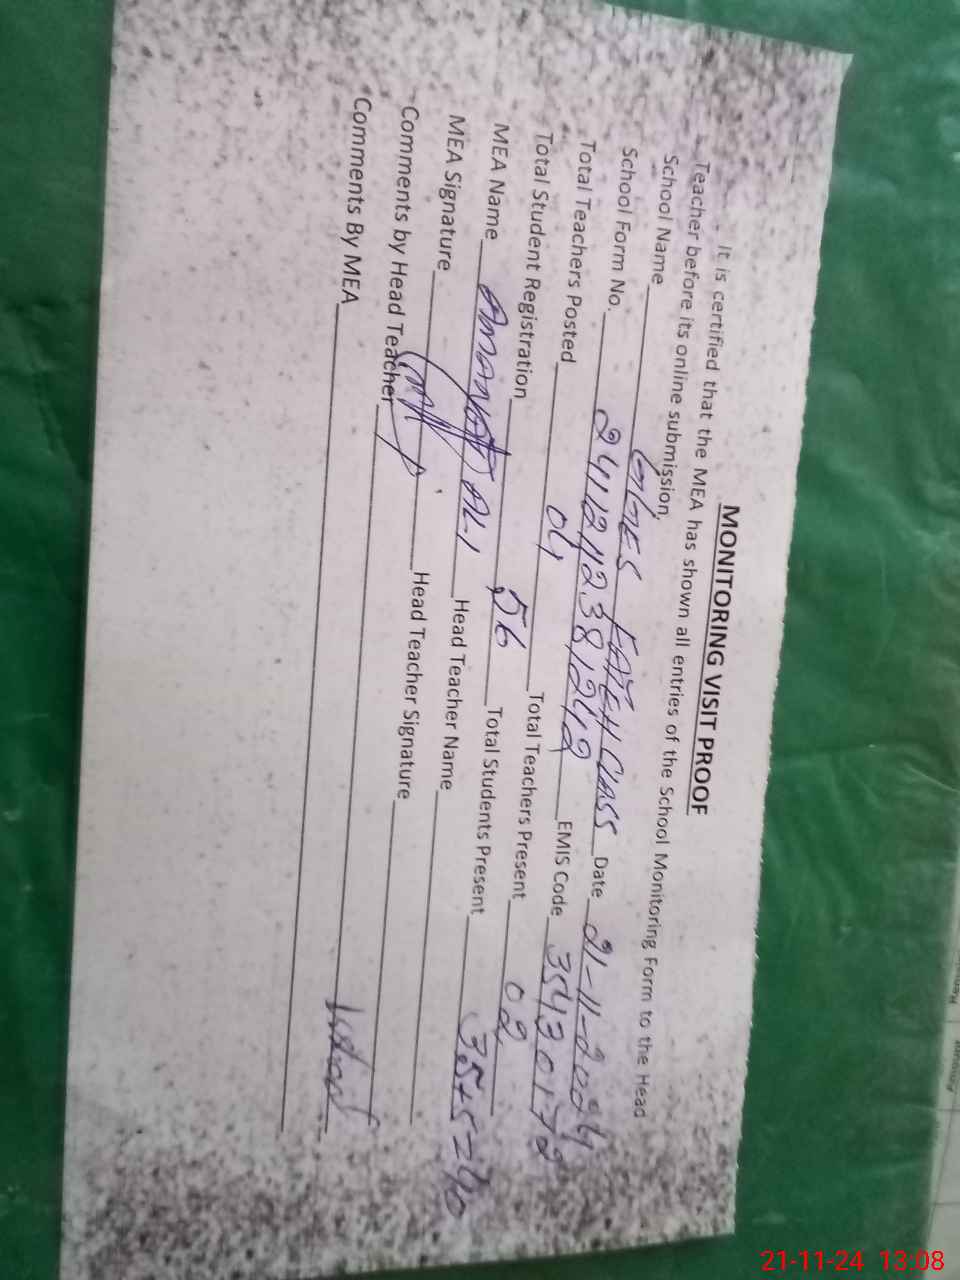 MONITORING VISIT PROOF
It is certified that the MEA has shown all entries of the School Monitoring Form to the Head
Teacher before its online submission.
School Name GGES FATEH Class Date 21-11-2024
School Form No. EMIS Code 35430172
Total Teachers Posted 04 Total Teachers Present 02
Total Student Registration 56 Total Students Present 35+5=40
MEA Name Ali Head Teacher Name
MEA Signature Head Teacher Signature
Comments by Head Teacher
Comments By MEA
21-11-24 13:08